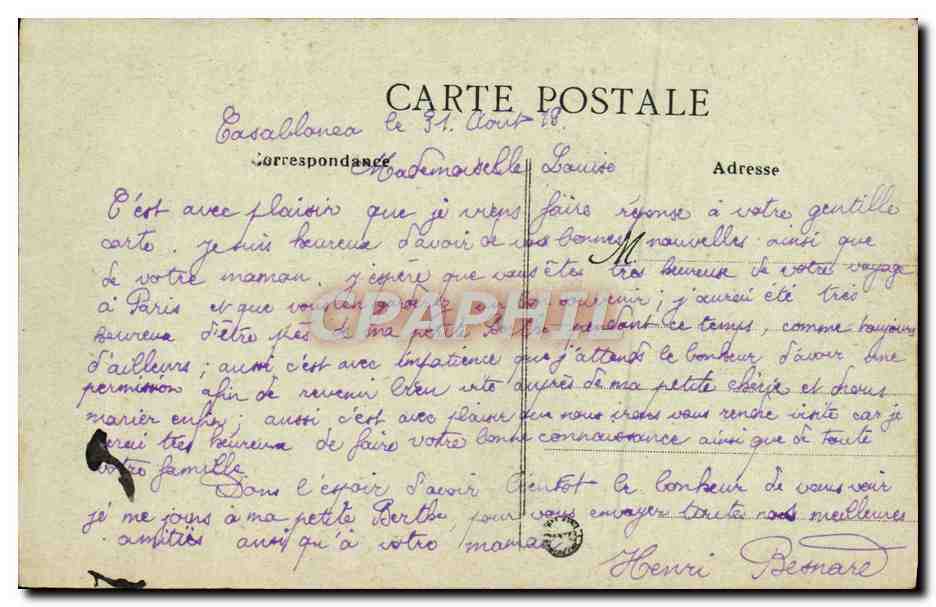 CARTE POSTALE
Casablanca le 31. Août 18.
Correspondance
Adresse
Mademoiselle Louise
C'est avec plaisir que je viens faire réponse à votre gentille
carte. je suis heureux d'avoir de vos bonnes nouvelles ainsi que
M
de votre maman. j'espère que vous êtes très heureuse de votre voyage
à Paris et que vous en un bon souvenir ; j'aurai été très
CPARPHIL
heureux d'être près de ma petite Berthe pendant ce temps, comme toujours
d'ailleurs ; aussi c'est avec impatience que j'attends le bonheur d'avoir une
permission afin de revenir bien vite auprès de ma petite chérie et nous
marier enfin ; aussi c'est avec plaisir que nous irons vous rendre visite car je
serai très heureux de faire votre bonne connaissance ainsi que de toute
votre famille
Dans l'espoir d'avoir bientôt le bonheur de vous voir
je me joins à ma petite Berthe, pour vous envoyer toute nos meilleures
amitiés ainsi qu'à votre maman
Henri Besnard